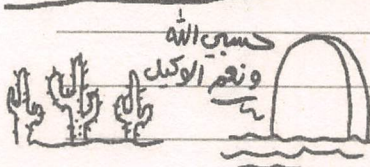 حسبي الله
ونعم الوكيل